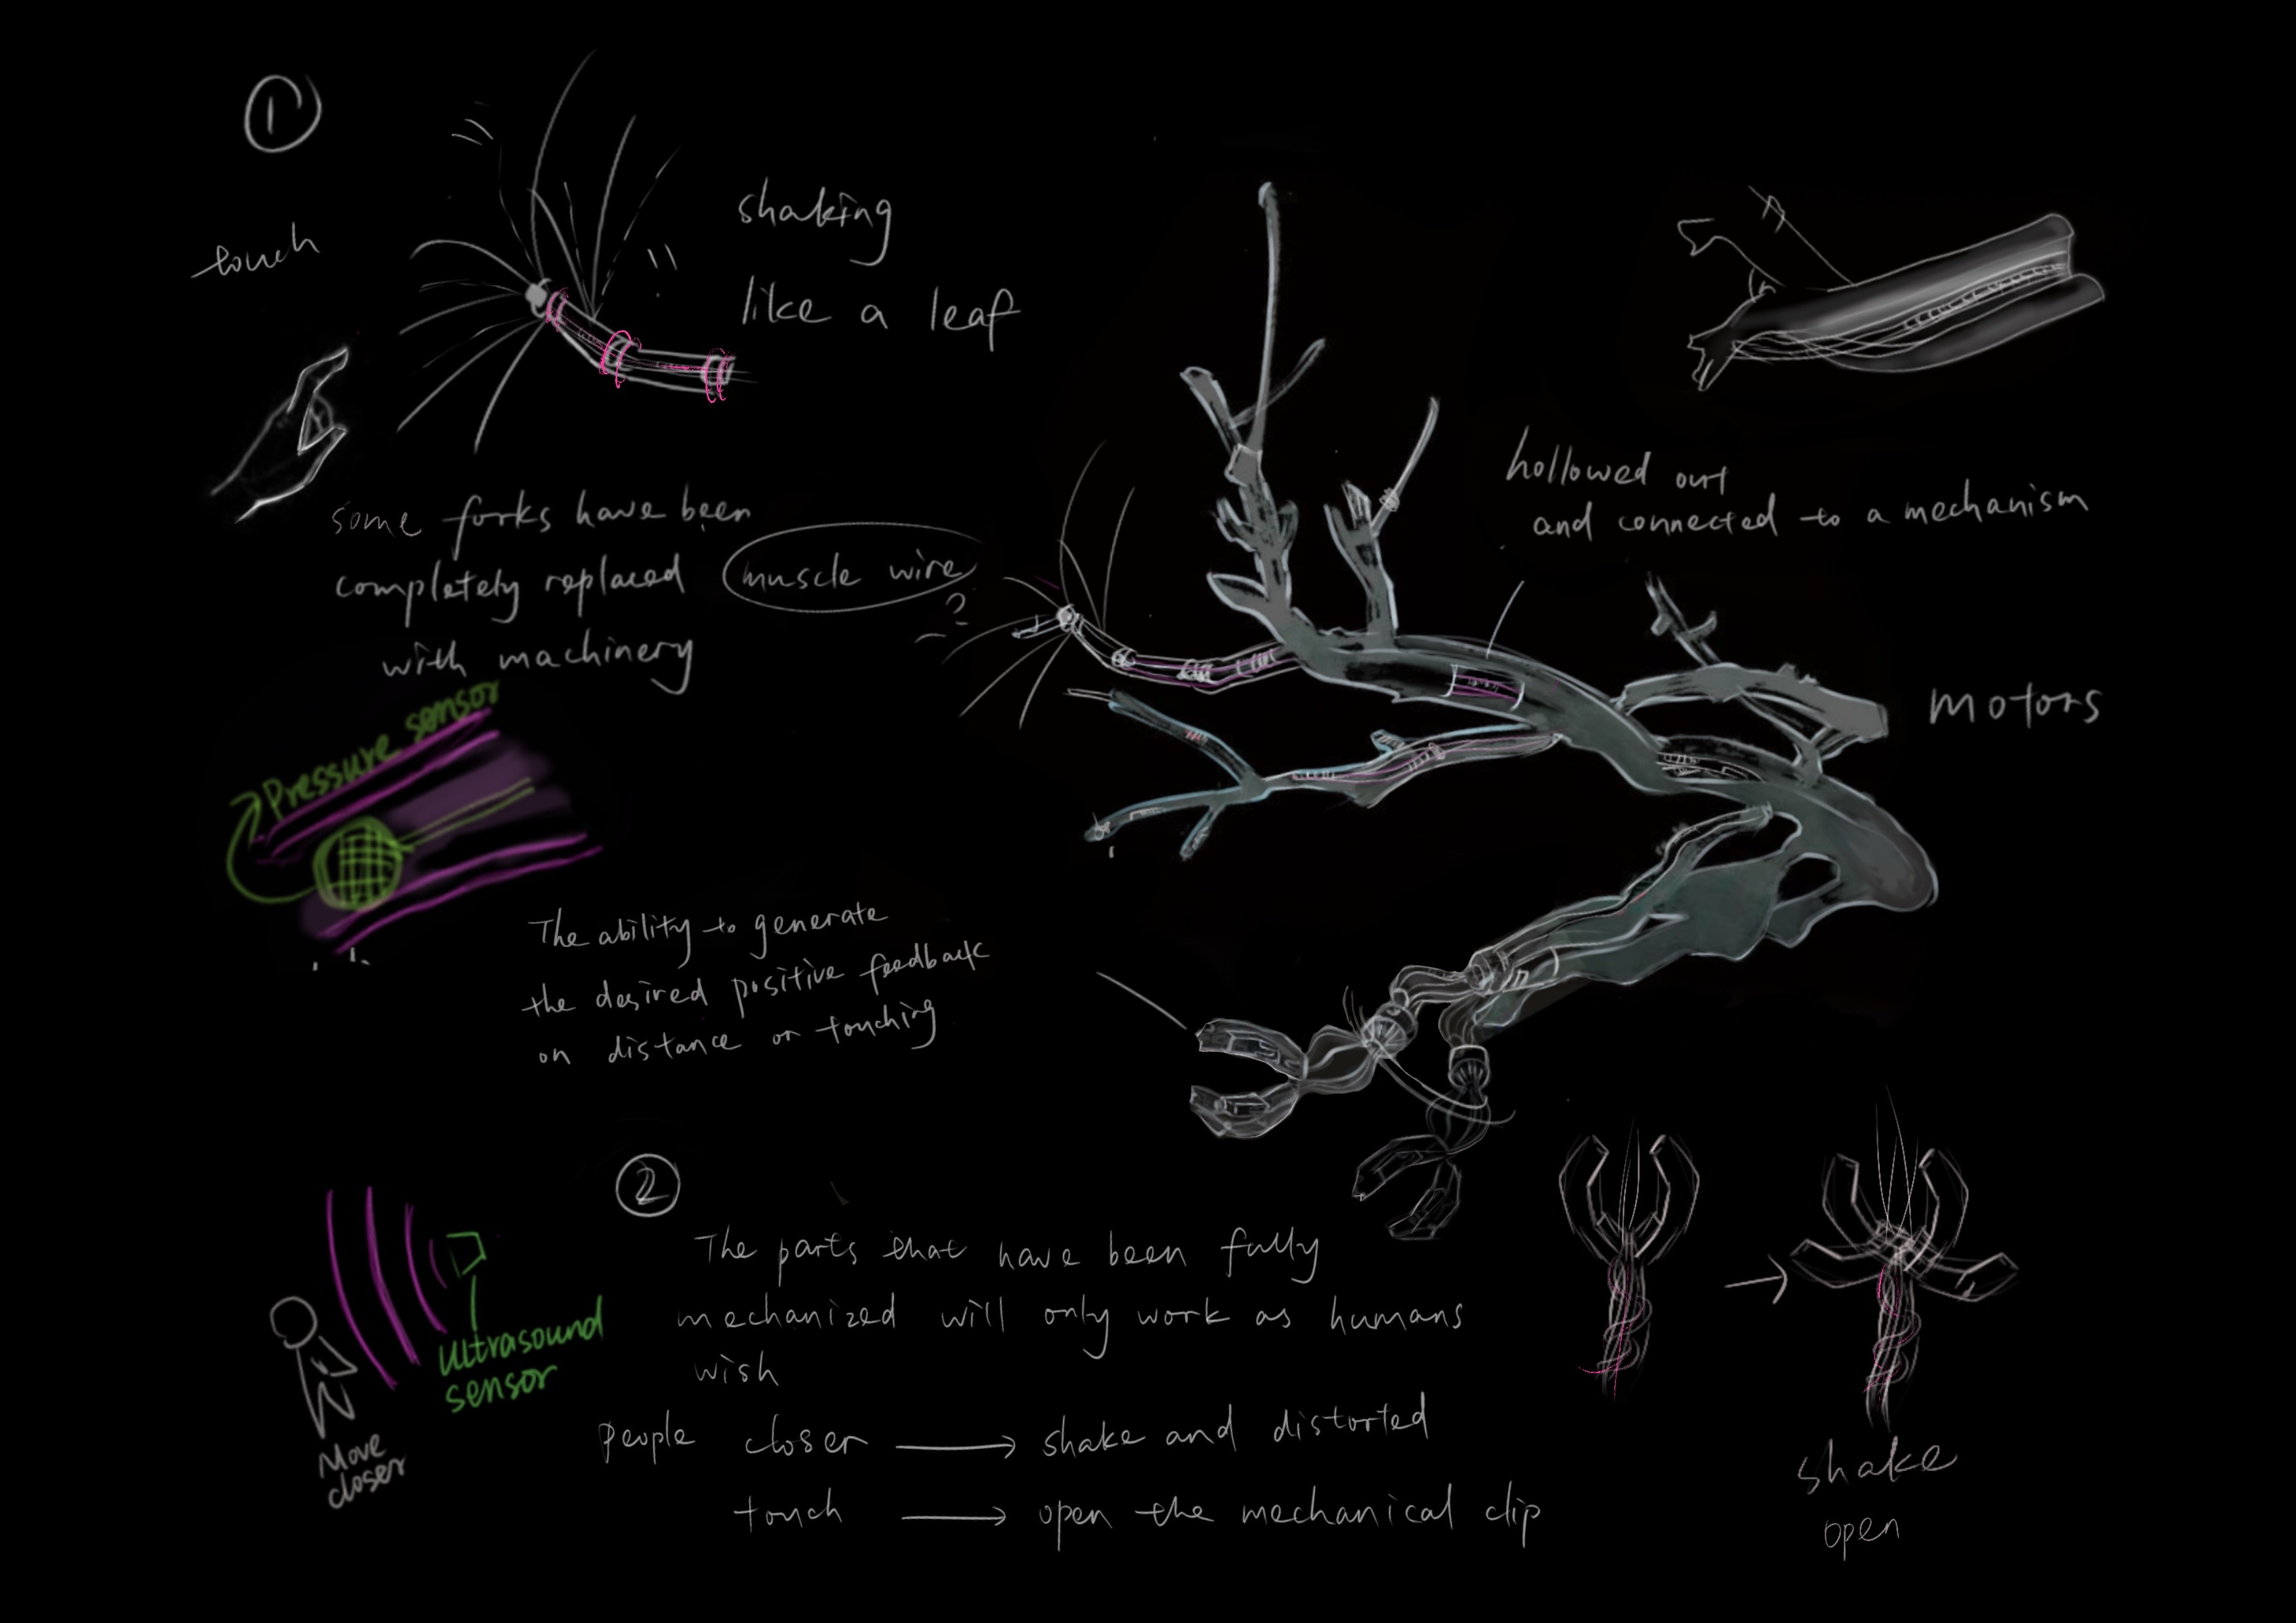 1
touch
shaking
like a leaf
some forks have been
completely replaced
with machinery
muscle wire
?
hollowed out
and connected to a mechanism
motors
Pressure sensor
The ability to generate
the desired positive feedback
on distance or touching
2
The parts that have been fully
mechanized will only work as humans
wish
People closer → shake and distorted
touch → open the mechanical clip
ultrasound
sensor
Move
closer
→
shake
open